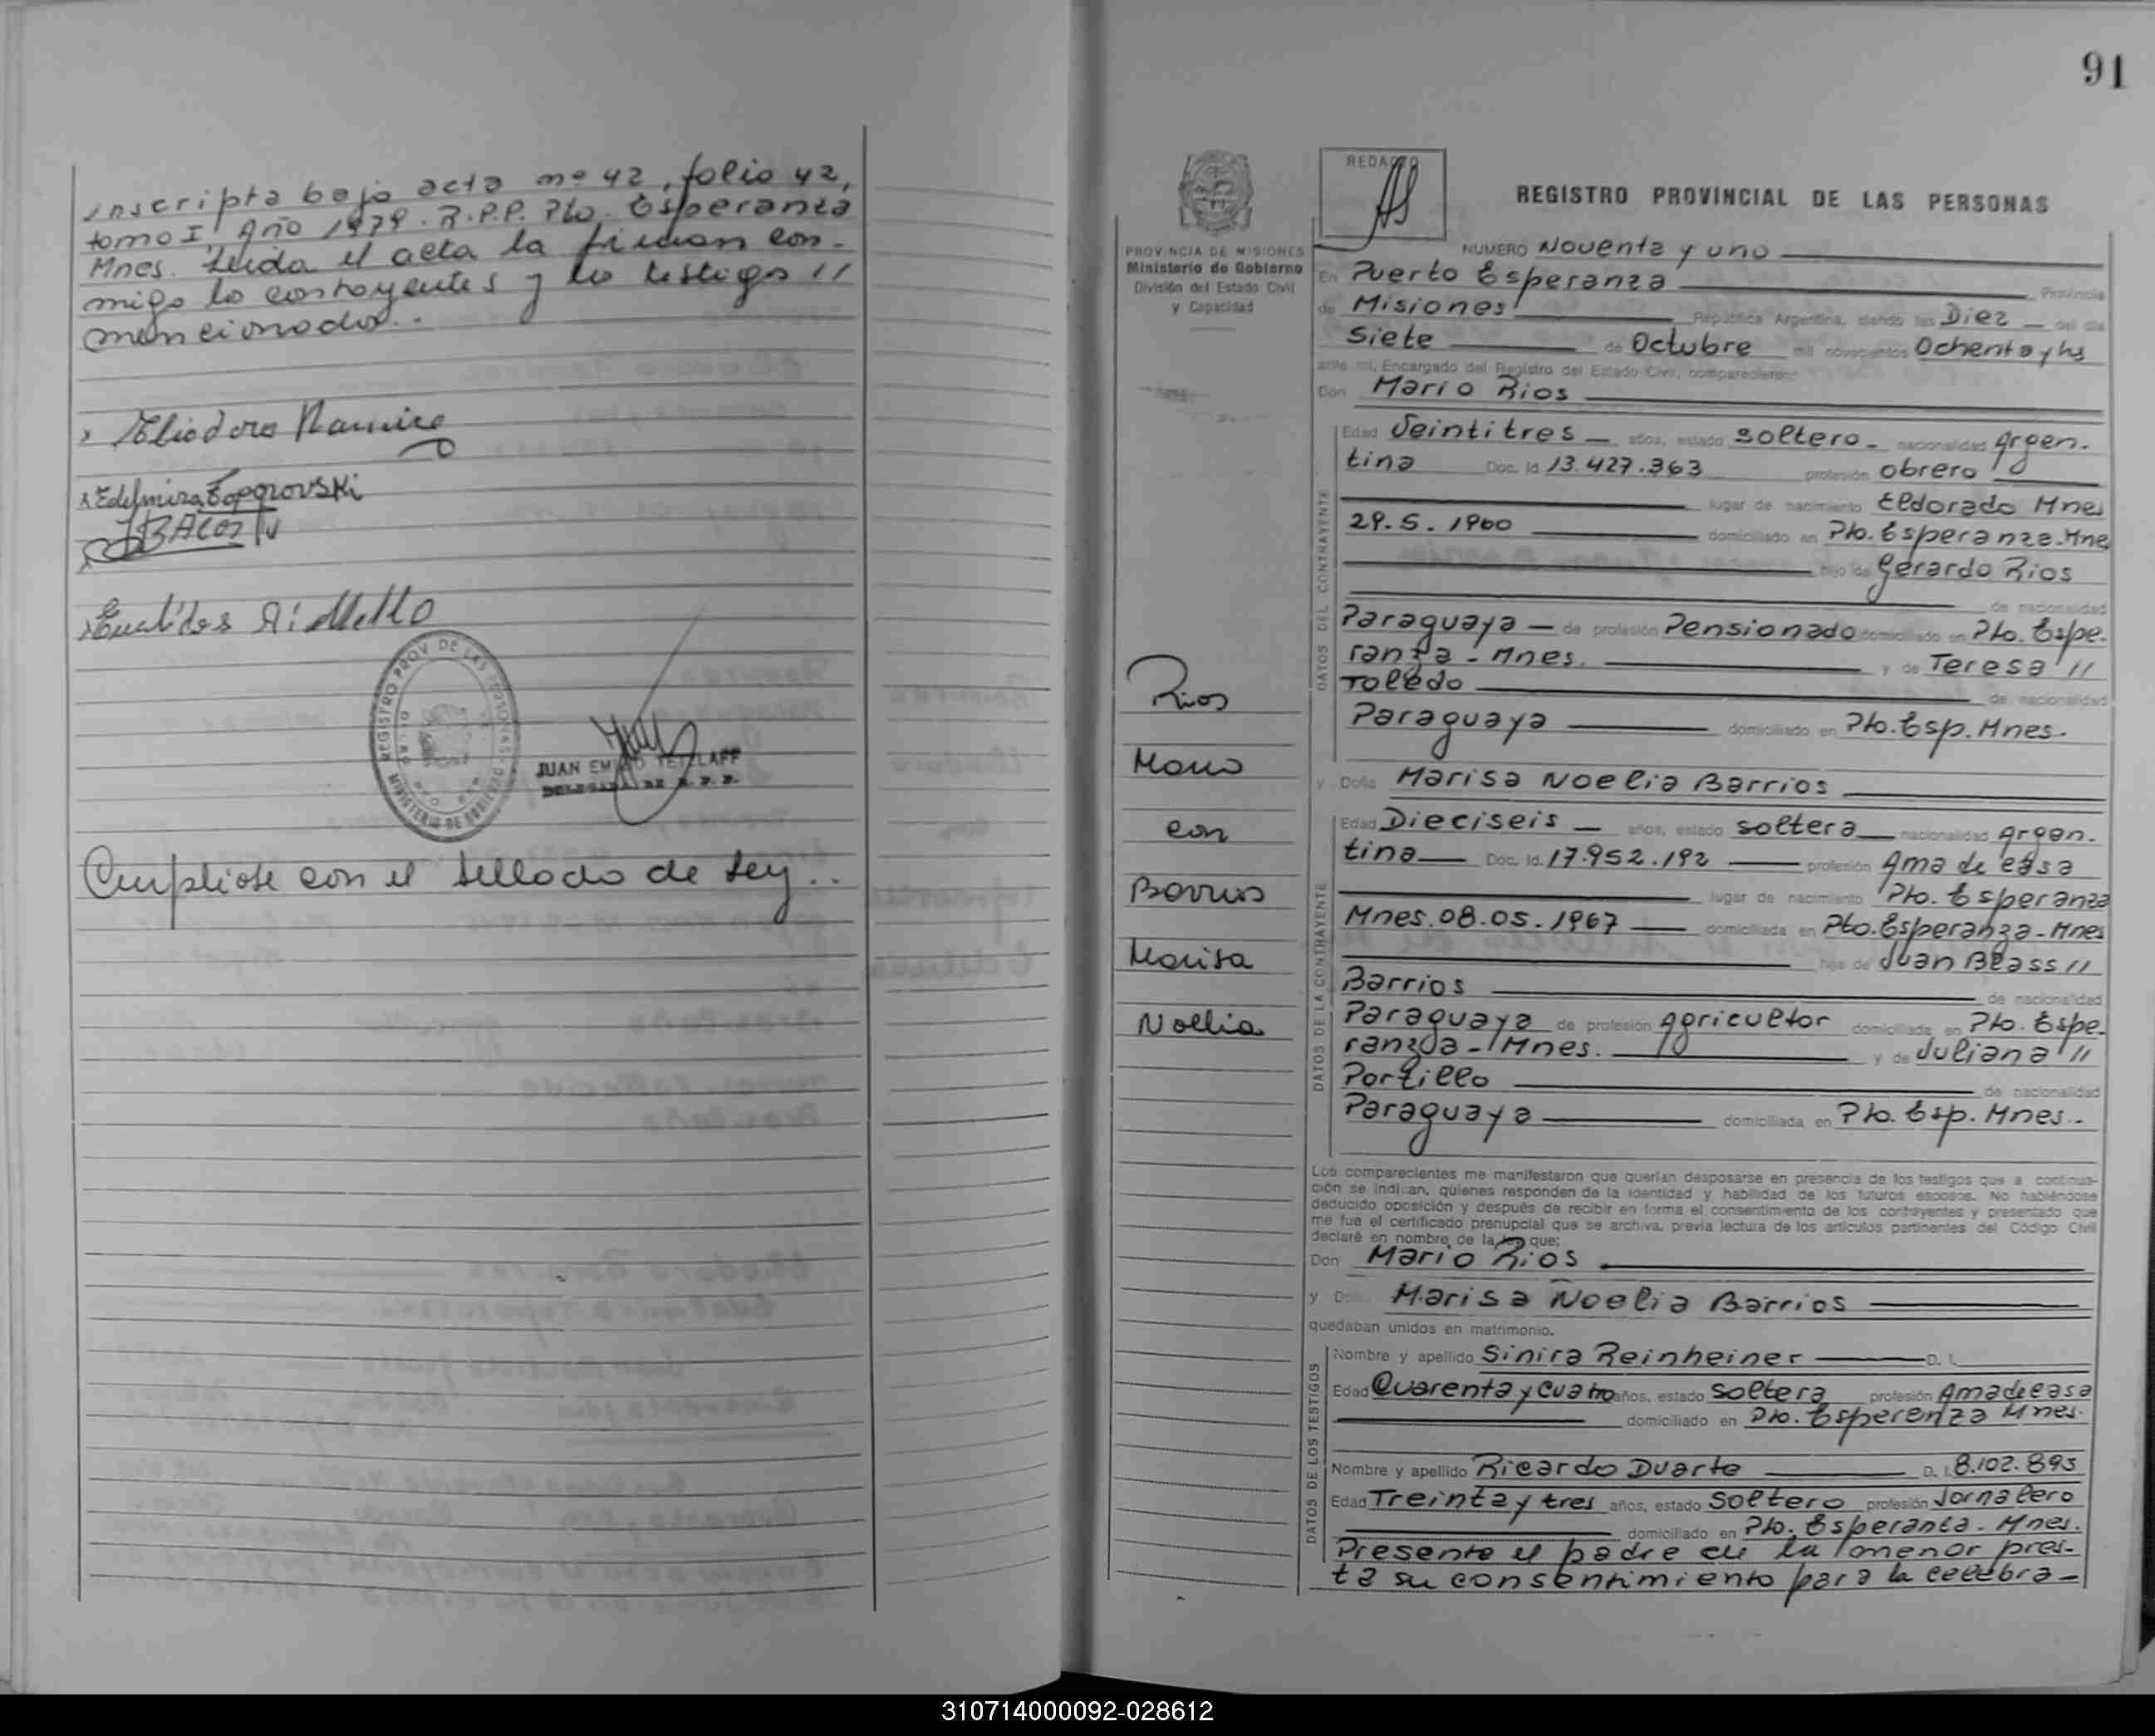 inscripta bajo acta nº 42, folio 42,
tomo I, Año 1979. R.P.P. Pto. Esperanza
Mnes. Leida el acta la firman con-
migo los contrayentes y los testigos //
mencionados..
Eliodoro Ramirez
Edelmira Toporovski
REGISTRO PROV DE LAS PERSONAS
MINISTERIO DE GOBIERNO
JUAN EMILIO TETZLAFF
DELEGADO DE R. P. P.
Cumpliose con el sellado de Ley..
91
PROVINCIA DE MISIONES
Ministerio de Gobierno
División del Estado Civil
y Capacidad
REDACTO
REGISTRO PROVINCIAL DE LAS PERSONAS
NUMERO Noventa y uno
En Puerto Esperanza Provincia
de Misiones República Argentina, siendo las Diez del día
Siete de Octubre mil novecientos Ochenta y tres
ante mí, Encargado del Registro del Estado Civil, comparecieron:
Don Mario Rios
DATOS DEL CONTRAYENTE
Edad Veintitres años, estado soltero nacionalidad Argen-
tina Doc. Id. 13.427.363 profesión obrero
lugar de nacimiento Eldorado Mnes
29.5.1960 domiciliado en Pto. Esperanza-Mnes
hijo de Gerardo Rios
de nacionalidad
Paraguaya de profesión Pensionado domiciliado en Pto. Espe-
ranza-Mnes. y de Teresa //
Toledo de nacionalidad
Paraguaya domiciliado en Pto. Esp. Mnes.
Rios
Mario
con
Barrios
Marisa
Noelia
y Doña Marisa Noelia Barrios
DATOS DE LA CONTRAYENTE
Edad Dieciseis años, estado soltera nacionalidad Argen-
tina Doc. Id. 17.952.192 profesión Ama de casa
lugar de nacimiento Pto. Esperanza
Mnes. 08.05.1967 domiciliada en Pto. Esperanza-Mnes
hija de Juan Blass //
Barrios de nacionalidad
Paraguaya de profesión Agricultor domiciliada en Pto. Espe-
ranza-Mnes. y de Juliana //
Portillo de nacionalidad
Paraguaya domiciliada en Pto. Esp. Mnes..
Los comparecientes me manifestaron que querían desposarse en presencia de los testigos que a continua-
ción se indican, quienes responden de la identidad y habilidad de los futuros esposos. No habiéndose
deducido oposición y después de recibir en forma el consentimiento de los contrayentes y presentado que
me fue el certificado prenupcial que se archiva, previa lectura de los artículos pertinentes del Código Civil
declaré en nombre de la ley que:
Don Mario Rios
y Doña Marisa Noelia Barrios
quedaban unidos en matrimonio.
DATOS DE LOS TESTIGOS
Nombre y apellido Sinira Reinheiner D. I.
Edad Cuarenta y cuatro años, estado soltera profesión Ama de casa
domiciliado en Pto. Esperenza Mnes.
Nombre y apellido Ricardo Duarte D. I. 8.102.893
Edad Treinta y tres años, estado Soltero profesión Jornalero
domiciliado en Pto. Esperanza. Mnes.
Presente el padre de la menor pres-
ta su consentimiento para la celebra-
310714000092-028612